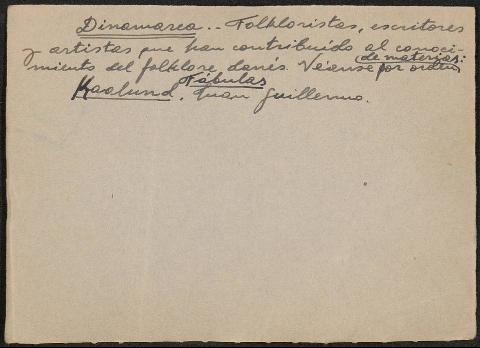 Dinamarca.. Folkloristas, escritores
y artistas que han contribuído al conoci-
miento del folklore danés. Véanse por orden
de materias:
Fábulas
Kaalund, Juan Guillermo.